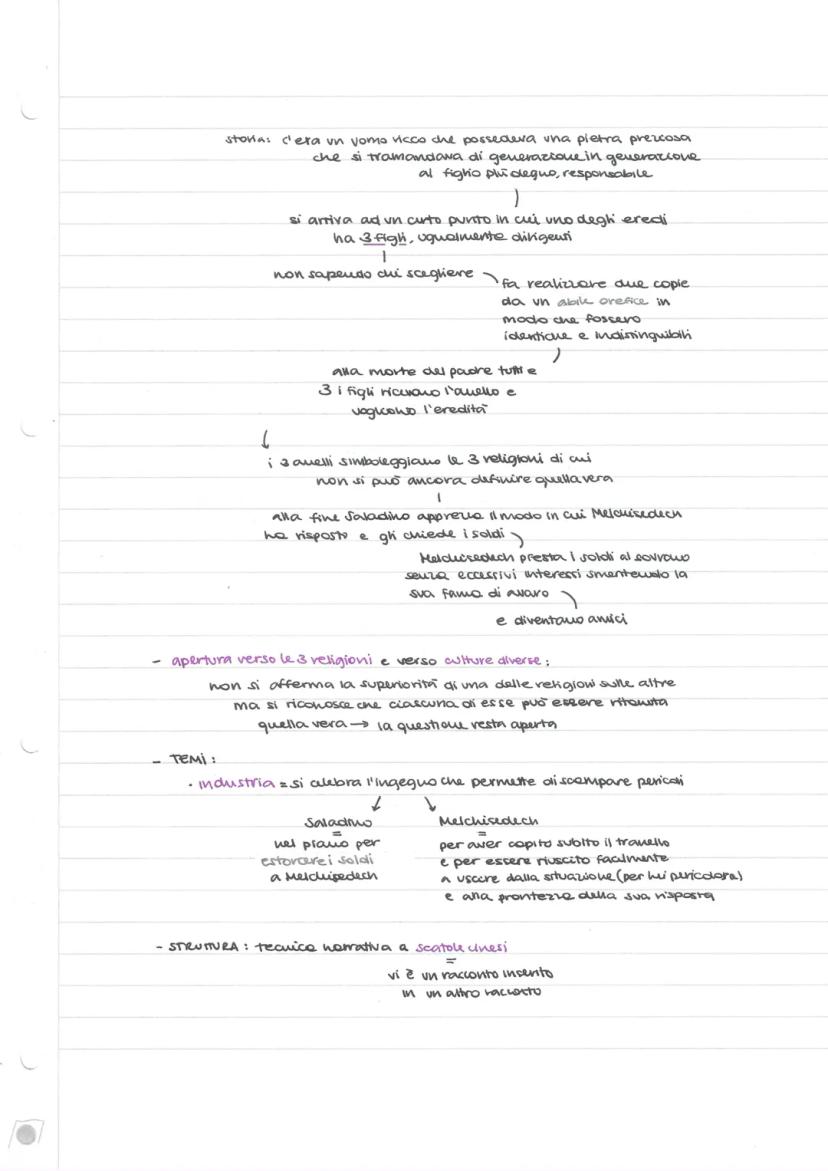 storia: c'era un uomo ricco che possedeva una pietra preziosa
che si tramandava di generazione in generazione
al figlio più degno, responsabile
si arriva ad un certo punto in cui uno degli eredi
ha 3 figli, ugualmente diligenti
non sapendo chi scegliere
fa realizzare due copie
da un abile orefice in
modo che fossero
identiche e indistinguibili
alla morte del padre tutti e
3 i figli ricevono l'anello e
vogliono l'eredità
i 3 anelli simboleggiano le 3 religioni di cui
non si può ancora definire quella vera
alla fine Saladino apprezza il modo in cui Melchisedech
ha risposto e gli chiede i soldi
Melchisedech presta i soldi al sovrano
senza eccessivi interessi smentendo la
sua fama di avaro
e diventano amici
- apertura verso le 3 religioni e verso culture diverse:
non si afferma la superiorità di una delle religioni sulle altre
ma si riconosce che ciascuna di esse può essere ritenuta
quella vera → la questione resta aperta
- TEMI:
· industria = si celebra l'ingegno che permette di scampare pericoli
Saladino Melchisedech
= =
nel piano per per aver capito subito il tranello
estorcere i soldi e per essere riuscito facilmente
a Melchisedech a uscire dalla situazione (per lui pericolosa)
e alla prontezza della sua risposta
- STRUTTURA: tecnica narrativa a scatole cinesi
=
vi è un racconto inserito
in un altro racconto